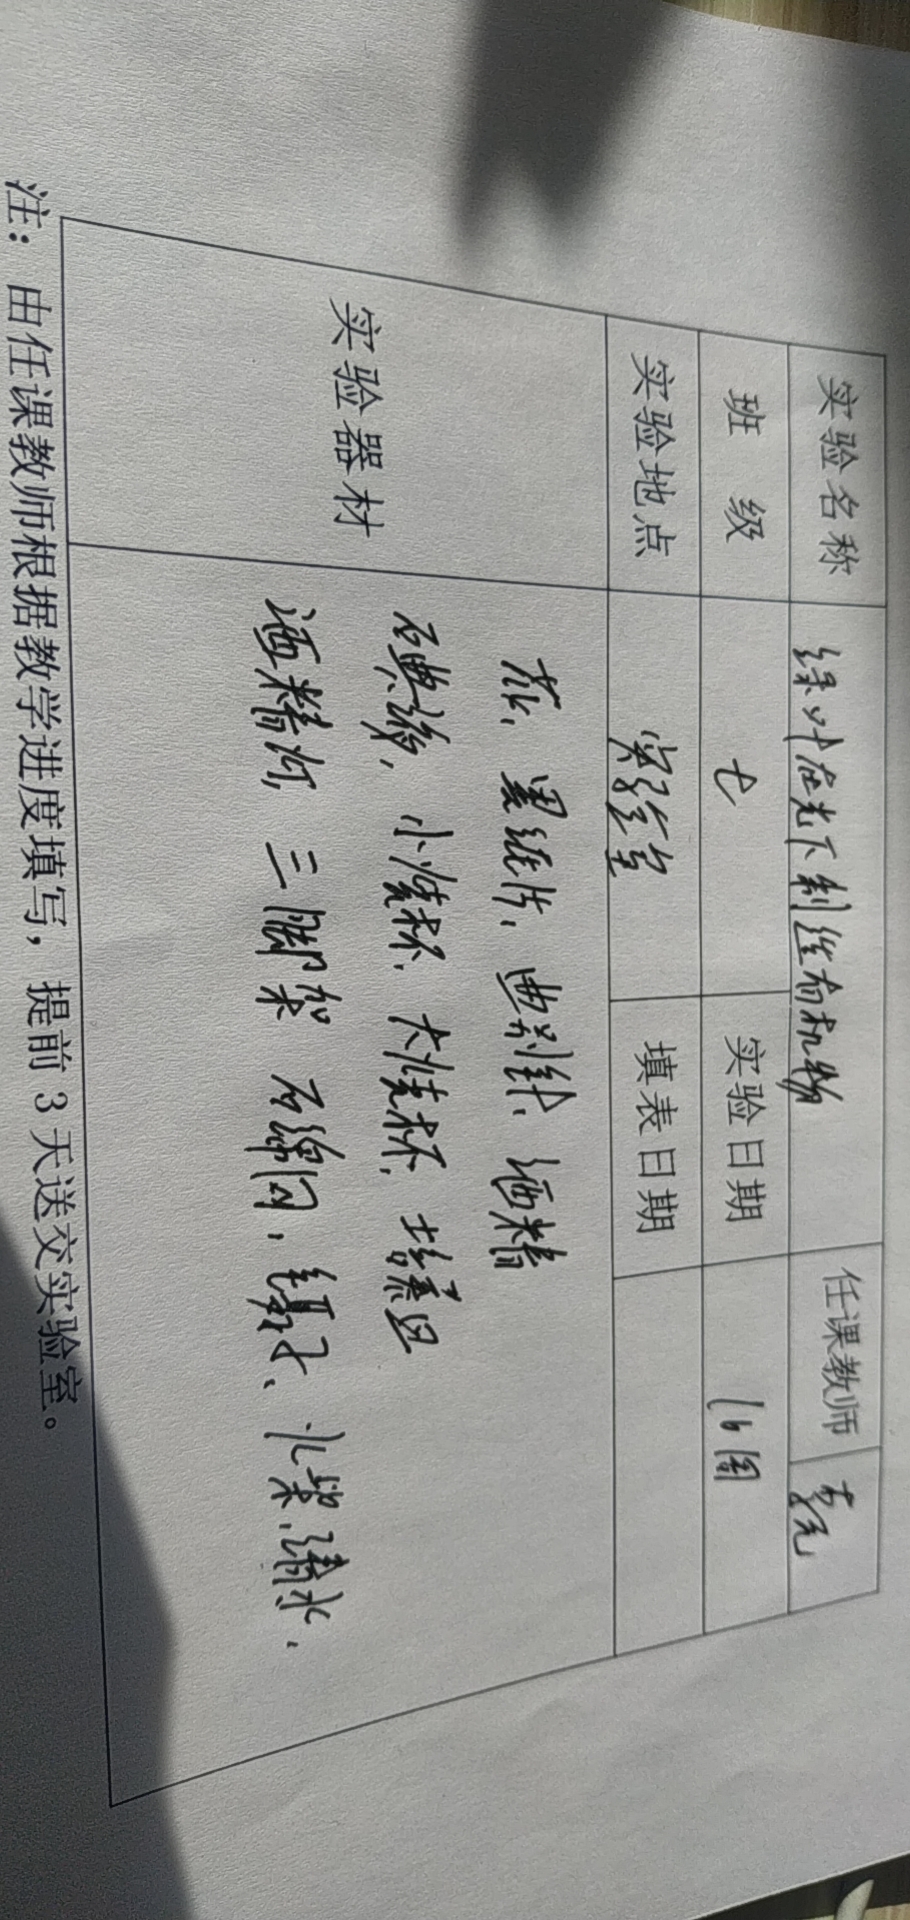 实验名称 绿叶在光下制造有机物 任课教师
班 级 七 实验日期 16周
实验地点 实验室 填表日期
实验器材
黑纸片、曲别针、酒精
碘液、小烧杯、大烧杯、培养皿
酒精灯、三脚架 石棉网、镊子、火柴、清水、
注：由任课教师根据教学进度填写，提前 3 天送交实验室。